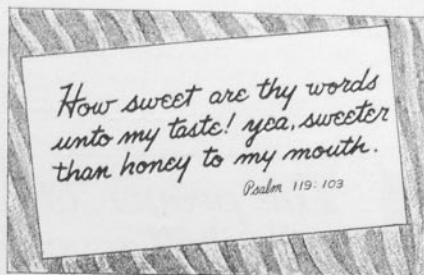 How sweet are thy words
unto my taste! yea, sweeter
than honey to my mouth.
Psalm 119:103